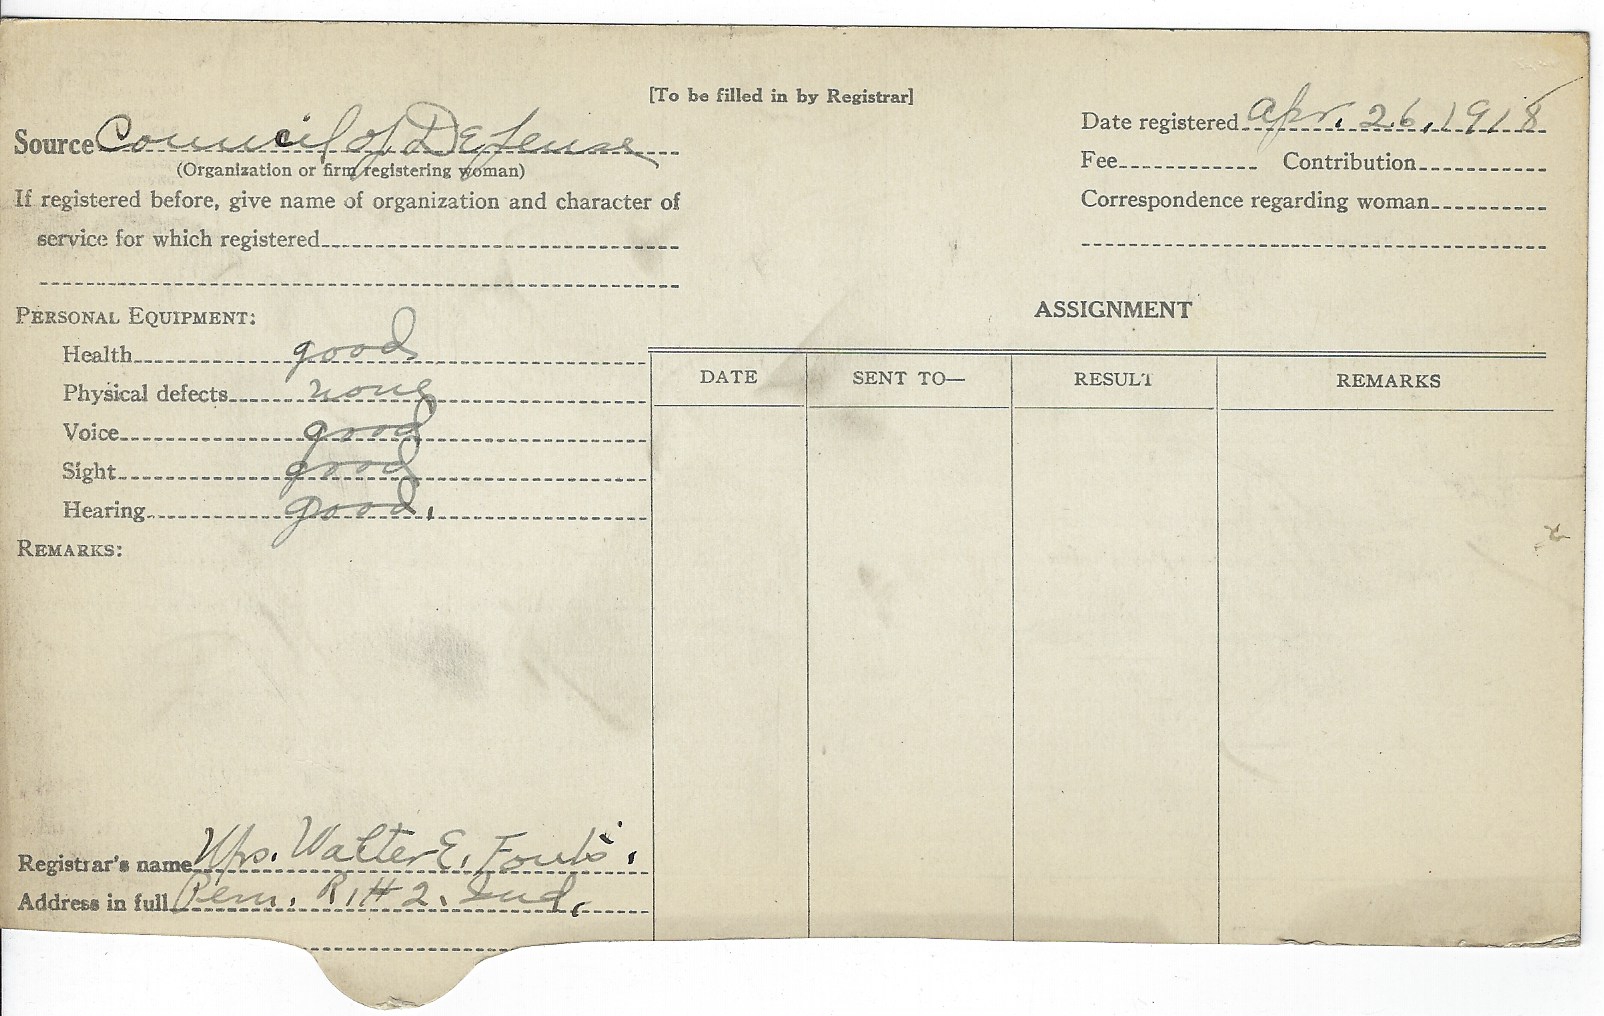 [To be filled in by Registrar]
Source Council of Defense
(Organization or firm registering woman)
If registered before, give name of organization and character of
service for which registered
Date registered Apr. 26, 1918
Fee Contribution
Correspondence regarding woman
PERSONAL EQUIPMENT:
Health good
Physical defects none
Voice good
Sight good
Hearing good.
REMARKS:
ASSIGNMENT
DATE SENT TO— RESULT REMARKS
Registrar's name Mrs. Walter E. Fouts.
Address in full Peru. R. # 2. Ind.